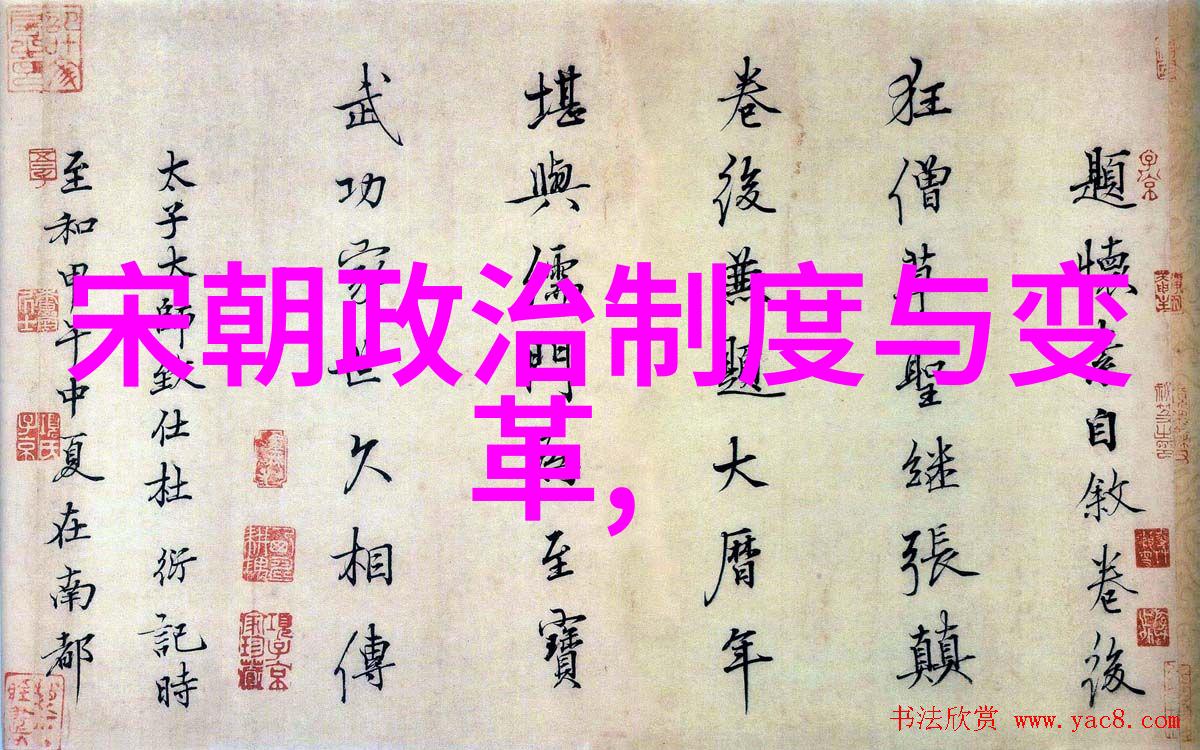 宋朝政治制度与变
革,
題懷素自敘卷後
狂僧草聖継張顛
卷後兼題大曆年
堪與儒門至寶
武功家世久相傳
太子太師致仕杜衍記時
至和甲午中夏在南都
項子京家珍藏
項氏子京
书法欣赏 www.yac8.com